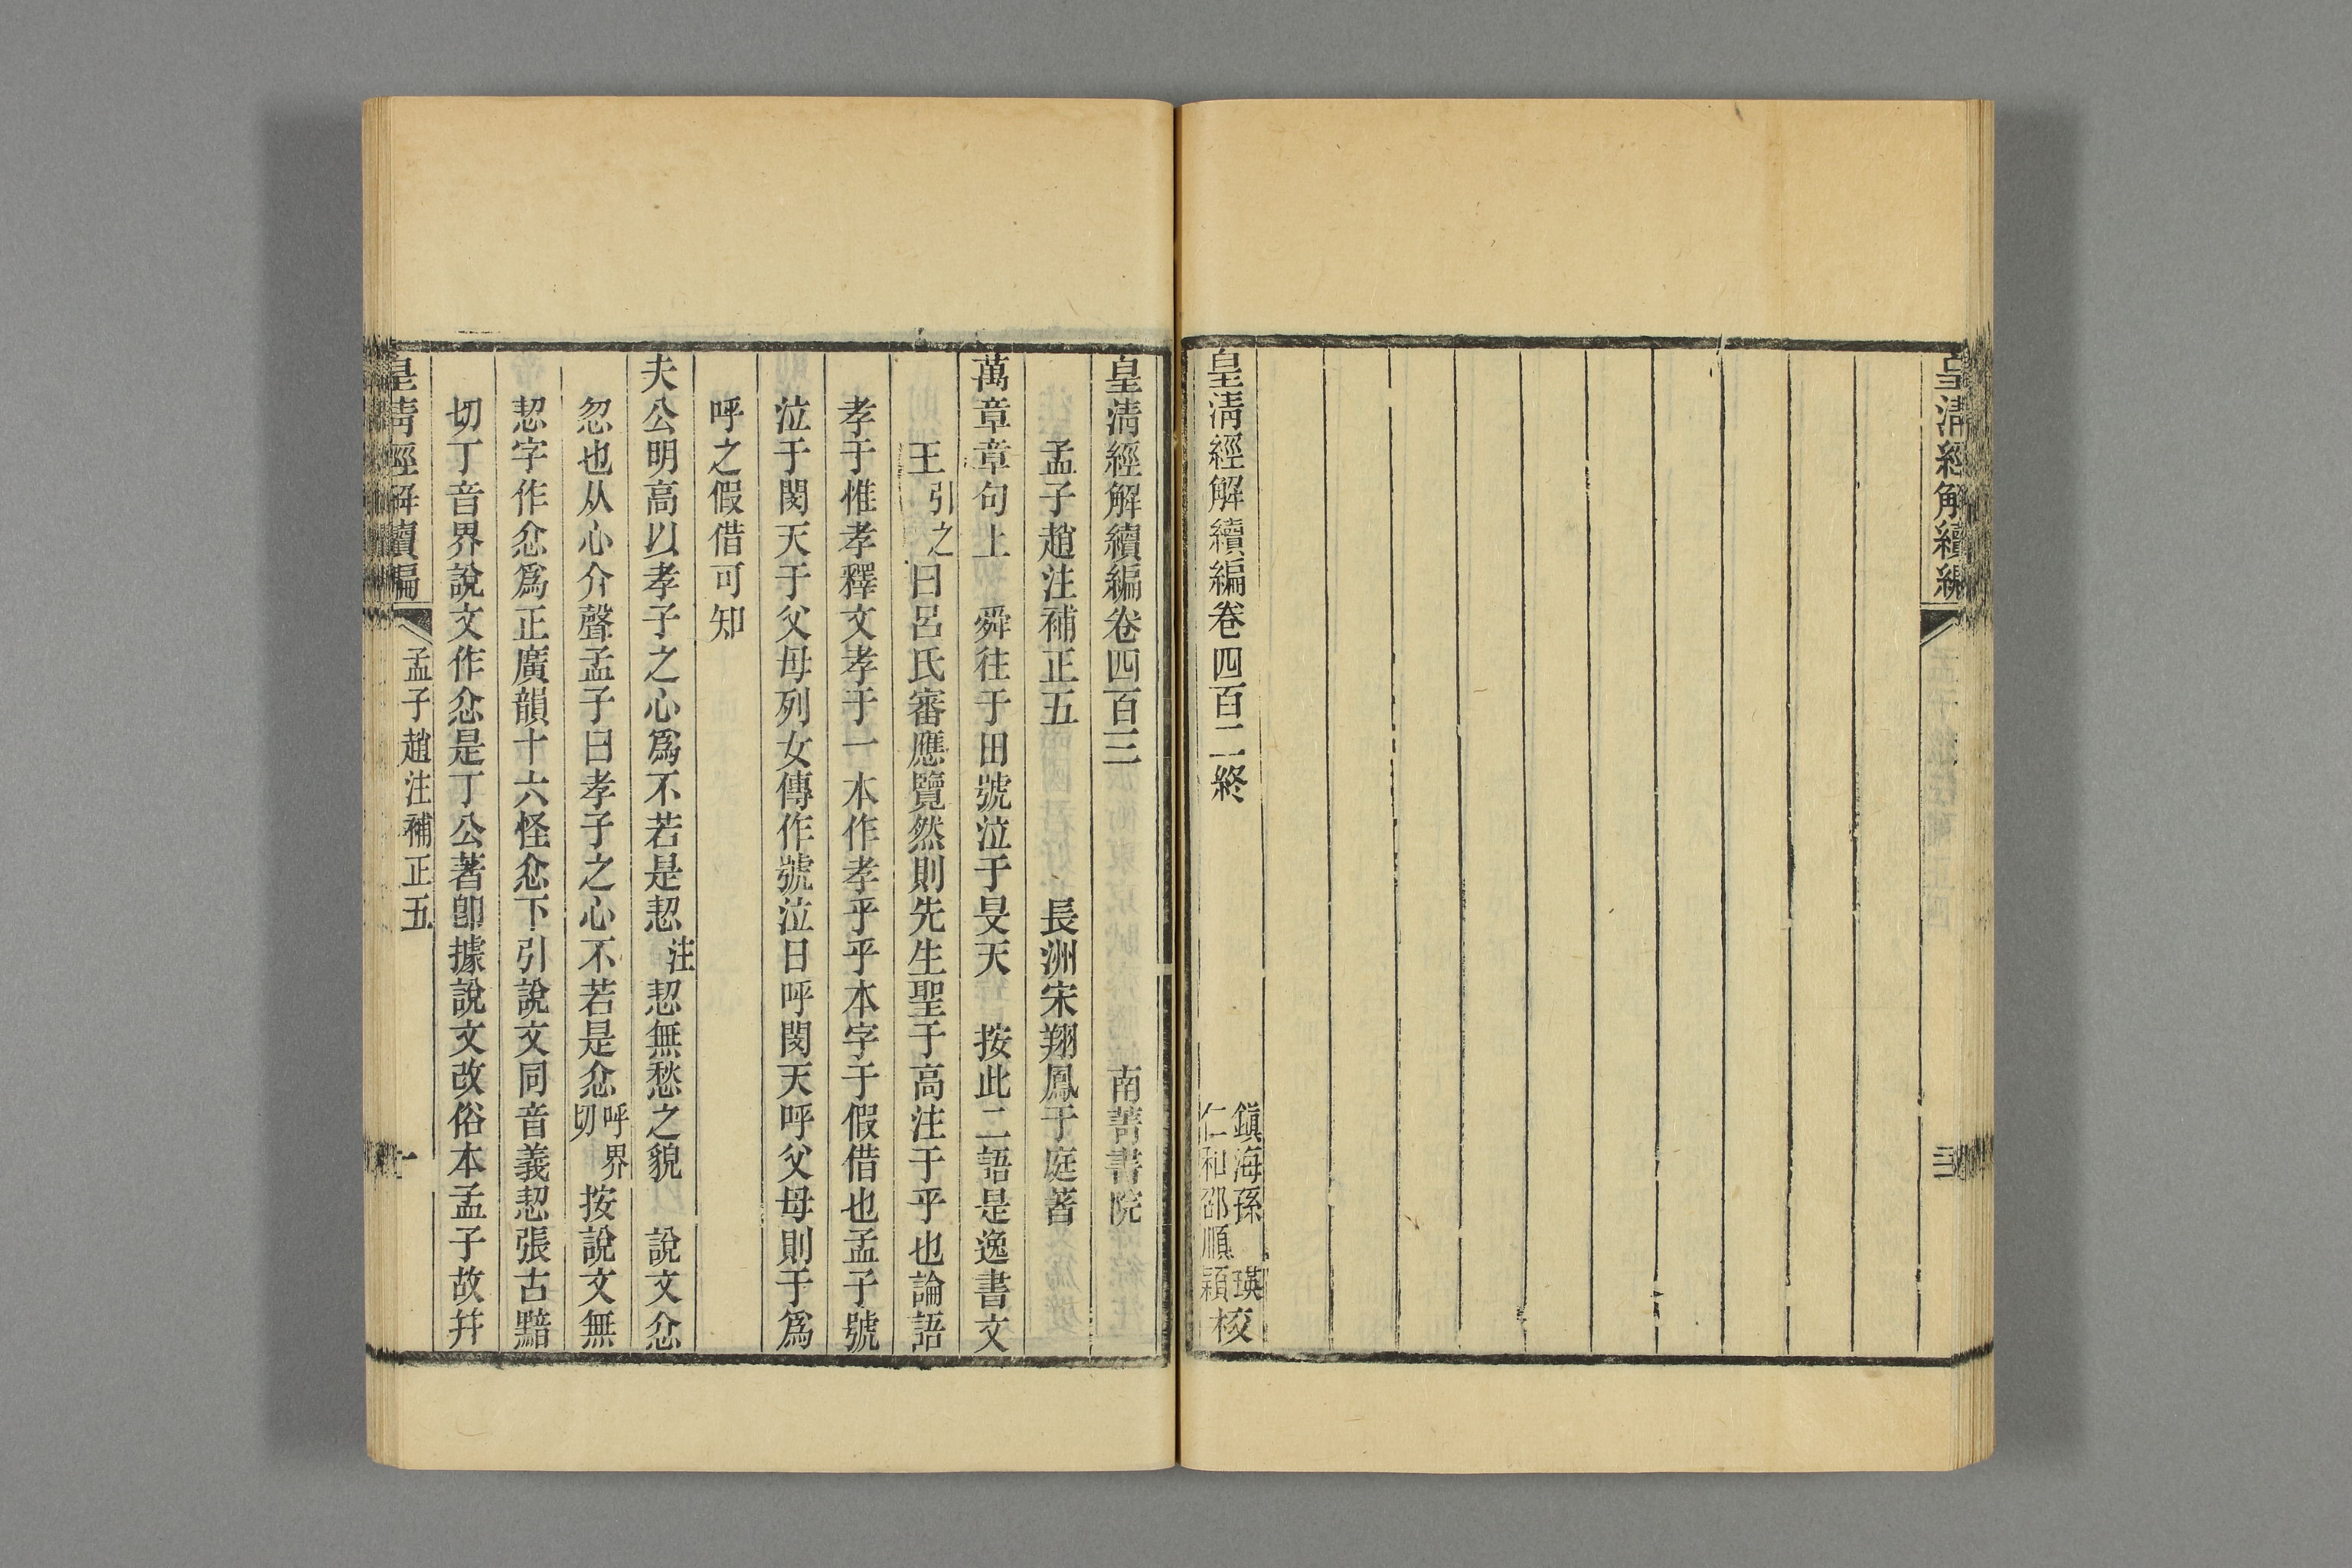 皇清經解續編
三
皇清經解續編卷四百二終
鎭海孫瑛
仁和邵順穎
校
皇清經解續編卷四百三
南菁書院
孟子趙注補正五
長洲宋翔鳳于庭著
萬章章句上　舜往于田號泣于旻天　按此二語是逸書文
王引之曰呂氏審應覽然則先生聖于高注于乎也論語
孝于惟孝釋文孝于一本作孝乎乎本字于假借也孟子號
泣于閔天于父母列女傳作號泣日呼閔天呼父母則于爲
呼之假借可知
夫公明高以孝子之心爲不若是恝注恝無愁之貌　說文忿
忽也从心介聲孟子曰孝子之心不若是忿呼界切按說文無
恝字作忿爲正廣韻十六怪忿下引說文同音義恝張古黠
切丁音界說文作忿是丁公著卽據說文改俗本孟子故幷
皇清經解續編
孟子趙注補正五
一